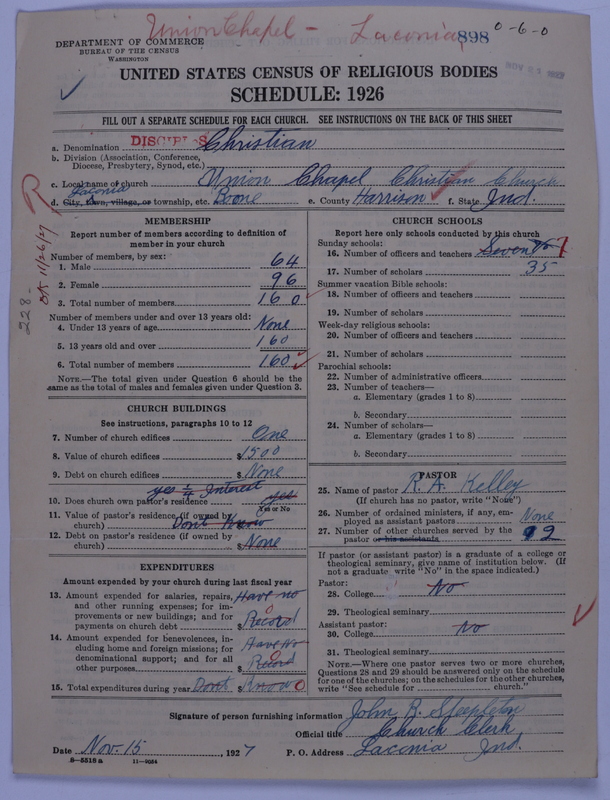 Union Chapel - Laconia, 898 0-6-0
DEPARTMENT OF COMMERCE
BUREAU OF THE CENSUS
WASHINGTON
UNITED STATES CENSUS OF RELIGIOUS BODIES
SCHEDULE: 1926
FILL OUT A SEPARATE SCHEDULE FOR EACH CHURCH. SEE INSTRUCTIONS ON THE BACK OF THIS SHEET
a. Denomination Christian
b. Division (Association, Conference,
Diocese, Presbytery, Synod, etc.)
c. Local name of church Union Chapel Christian Church
Laconia
d. City, town, village, or township, etc. Boone e. County Harrison f. State Ind.
228-
OK 11/26/27
MEMBERSHIP
Report number of members according to definition of
member in your church
Number of members, by sex:
1. Male 64
2. Female 96
3. Total number of members 160
Number of members under and over 13 years old:
4. Under 13 years of age None
5. 13 years old and over 160
6. Total number of members 160
NOTE.—The total given under Question 6 should be the
same as the total of males and females given under Question 3.
CHURCH BUILDINGS
See instructions, paragraphs 10 to 12
7. Number of church edifices One
8. Value of church edifices $1500
9. Debt on church edifices $None
yes 1/4 Interest
10. Does church own pastor's residence yes
Yes or No
11. Value of pastor's residence (if owned by
church) Dont Know
12. Debt on pastor's residence (if owned by
church) $None
EXPENDITURES
Amount expended by your church during last fiscal year
13. Amount expended for salaries, repairs, Have no
and other running expenses; for im-
provements or new buildings; and for 0
payments on church debt $Record
14. Amount expended for benevolences, in- Have No
cluding home and foreign missions; for
denominational support; and for all 0
other purposes $Record
15. Total expenditures during year Dont $Know 0
CHURCH SCHOOLS
Report here only schools conducted by this church
Sunday schools:
16. Number of officers and teachers Seven 7
17. Number of scholars 35
Summer vacation Bible schools:
18. Number of officers and teachers
19. Number of scholars
Week-day religious schools:
20. Number of officers and teachers
21. Number of scholars
Parochial schools:
22. Number of administrative officers
23. Number of teachers—
a. Elementary (grades 1 to 8)
b. Secondary
24. Number of scholars—
a. Elementary (grades 1 to 8)
b. Secondary
PASTOR
25. Name of pastor R. A. Kelley
(If church has no pastor, write "None")
26. Number of ordained ministers, if any, em-
ployed as assistant pastors None
27. Number of other churches served by the
pastor or his assistants 2
If pastor (or assistant pastor) is a graduate of a college or
theological seminary, give name of institution below. (If
not a graduate write "No" in the space indicated.)
Pastor:
28. College No
29. Theological seminary
Assistant pastor:
30. College No
31. Theological seminary
NOTE.—Where one pastor serves two or more churches,
Questions 28 and 29 should be answered only on the schedule
for one of the churches; on the schedules for the other churches,
write "See schedule for church."
Signature of person furnishing information John R. Steepleton
Official title Church Clerk
Date Nov. 15, 1927 P. O. Address Laconia Ind.
8-5518 a 11-9054